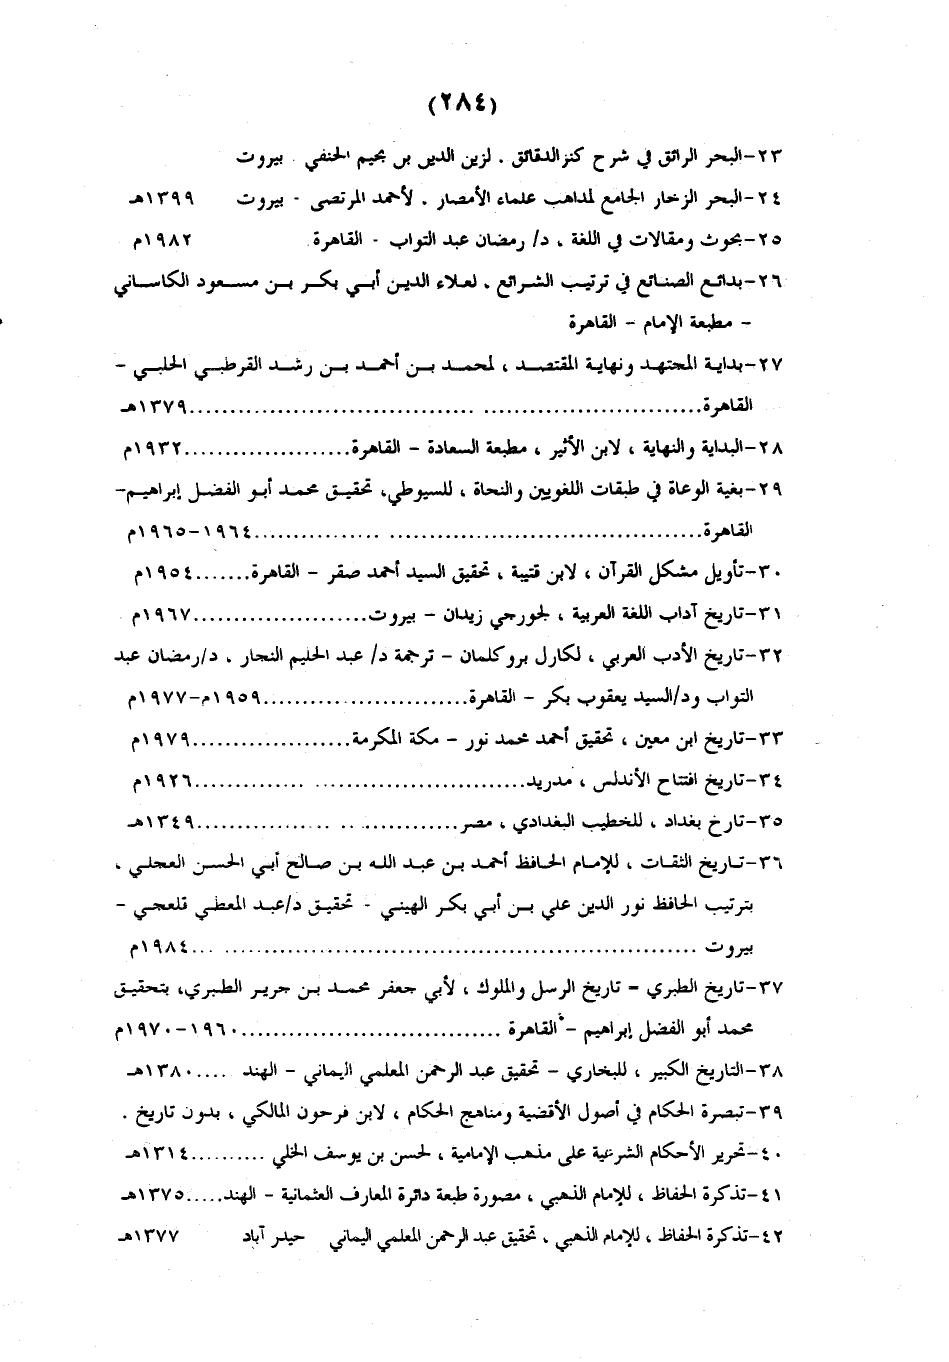 (٢٨٤)
٢٣-البحر الرائق في شرح كنز الدقائق . لزين الدين بن نجيم الحنفي . بيروت
٢٤-البحر الزخار الجامع لمذاهب علماء الأمصار . لأحمد المرتضى - بيروت ١٣٩٩هـ
٢٥-بحوث ومقالات في اللغة ، د/ رمضان عبد التواب - القاهرة ١٩٨٢م
٢٦-بدائع الصنائع في ترتيب الشرائع . لعلاء الدين أبي بكر بن مسعود الكاساني
- مطبعة الإمام - القاهرة
٢٧-بداية المجتهد ونهاية المقتصد ، لمحمد بن أحمد بن رشد القرطبي الحلبي -
القاهرة................................................................١٣٧٩هـ
٢٨-البداية والنهاية ، لابن الأثير ، مطبعة السعادة - القاهرة.....................١٩٣٢م
٢٩-بغية الوعاة في طبقات اللغويين والنحاة ، للسيوطي، تحقيق محمد أبو الفضل إبراهيم-
القاهرة........................................................١٩٦٤-١٩٦٥م
٣٠-تأويل مشكل القرآن ، لابن قتيبة ، تحقيق السيد أحمد صقر - القاهرة.......١٩٥٤م
٣١-تاريخ آداب اللغة العربية ، لجورجي زيدان - بيروت......................١٩٦٧م
٣٢-تاريخ الأدب العربي ، لكارل بروكلمان - ترجمة د/ عبد الحليم النجار . د/رمضان عبد
التواب ود/السيد يعقوب بكر - القاهرة..........................١٩٥٩م-١٩٧٧م
٣٣-تاريخ ابن معين ، تحقيق أحمد محمد نور - مكة المكرمة....................١٩٧٩م
٣٤-تاريخ افتتاح الأندلس ، مدريد..........................................١٩٢٦م
٣٥-تارخ بغداد ، للخطيب البغدادي ، مصر..................................١٣٤٩هـ
٣٦-تاريخ الثقات ، للإمام الحافظ أحمد بن عبد الله بن صالح أبي الحسن العجلي ،
بترتيب الحافظ نور الدين علي بن أبي بكر الهيني - تحقيق د/عبد المعطي قلعجي -
بيروت ................................................................١٩٨٤م
٣٧-تاريخ الطبري = تاريخ الرسل والملوك ، لأبي جعفر محمد بن جرير الطبري، بتحقيق
محمد أبو الفضل إبراهيم - القاهرة ................................١٩٦٠-١٩٧٠م
٣٨-التاريخ الكبير ، للبخاري - تحقيق عبد الرحمن المعلمي اليماني - الهند .....١٣٨٠هـ
٣٩-تبصرة الحكام في أصول الأقضية ومناهج الحكام ، لابن فرحون المالكي ، بدون تاريخ .
٤٠-تحرير الأحكام الشرعية على مذهب الإمامية ، لحسن بن يوسف الحلي ..........١٣١٤هـ
٤١-تذكرة الحفاظ ، للإمام الذهبي ، مصورة طبعة دائرة المعارف العثمانية - الهند.....١٣٧٥هـ
٤٢-تذكرة الحفاظ ، للإمام الذهبي ، تحقيق عبد الرحمن المعلمي اليماني حيدر آباد ١٣٧٧هـ